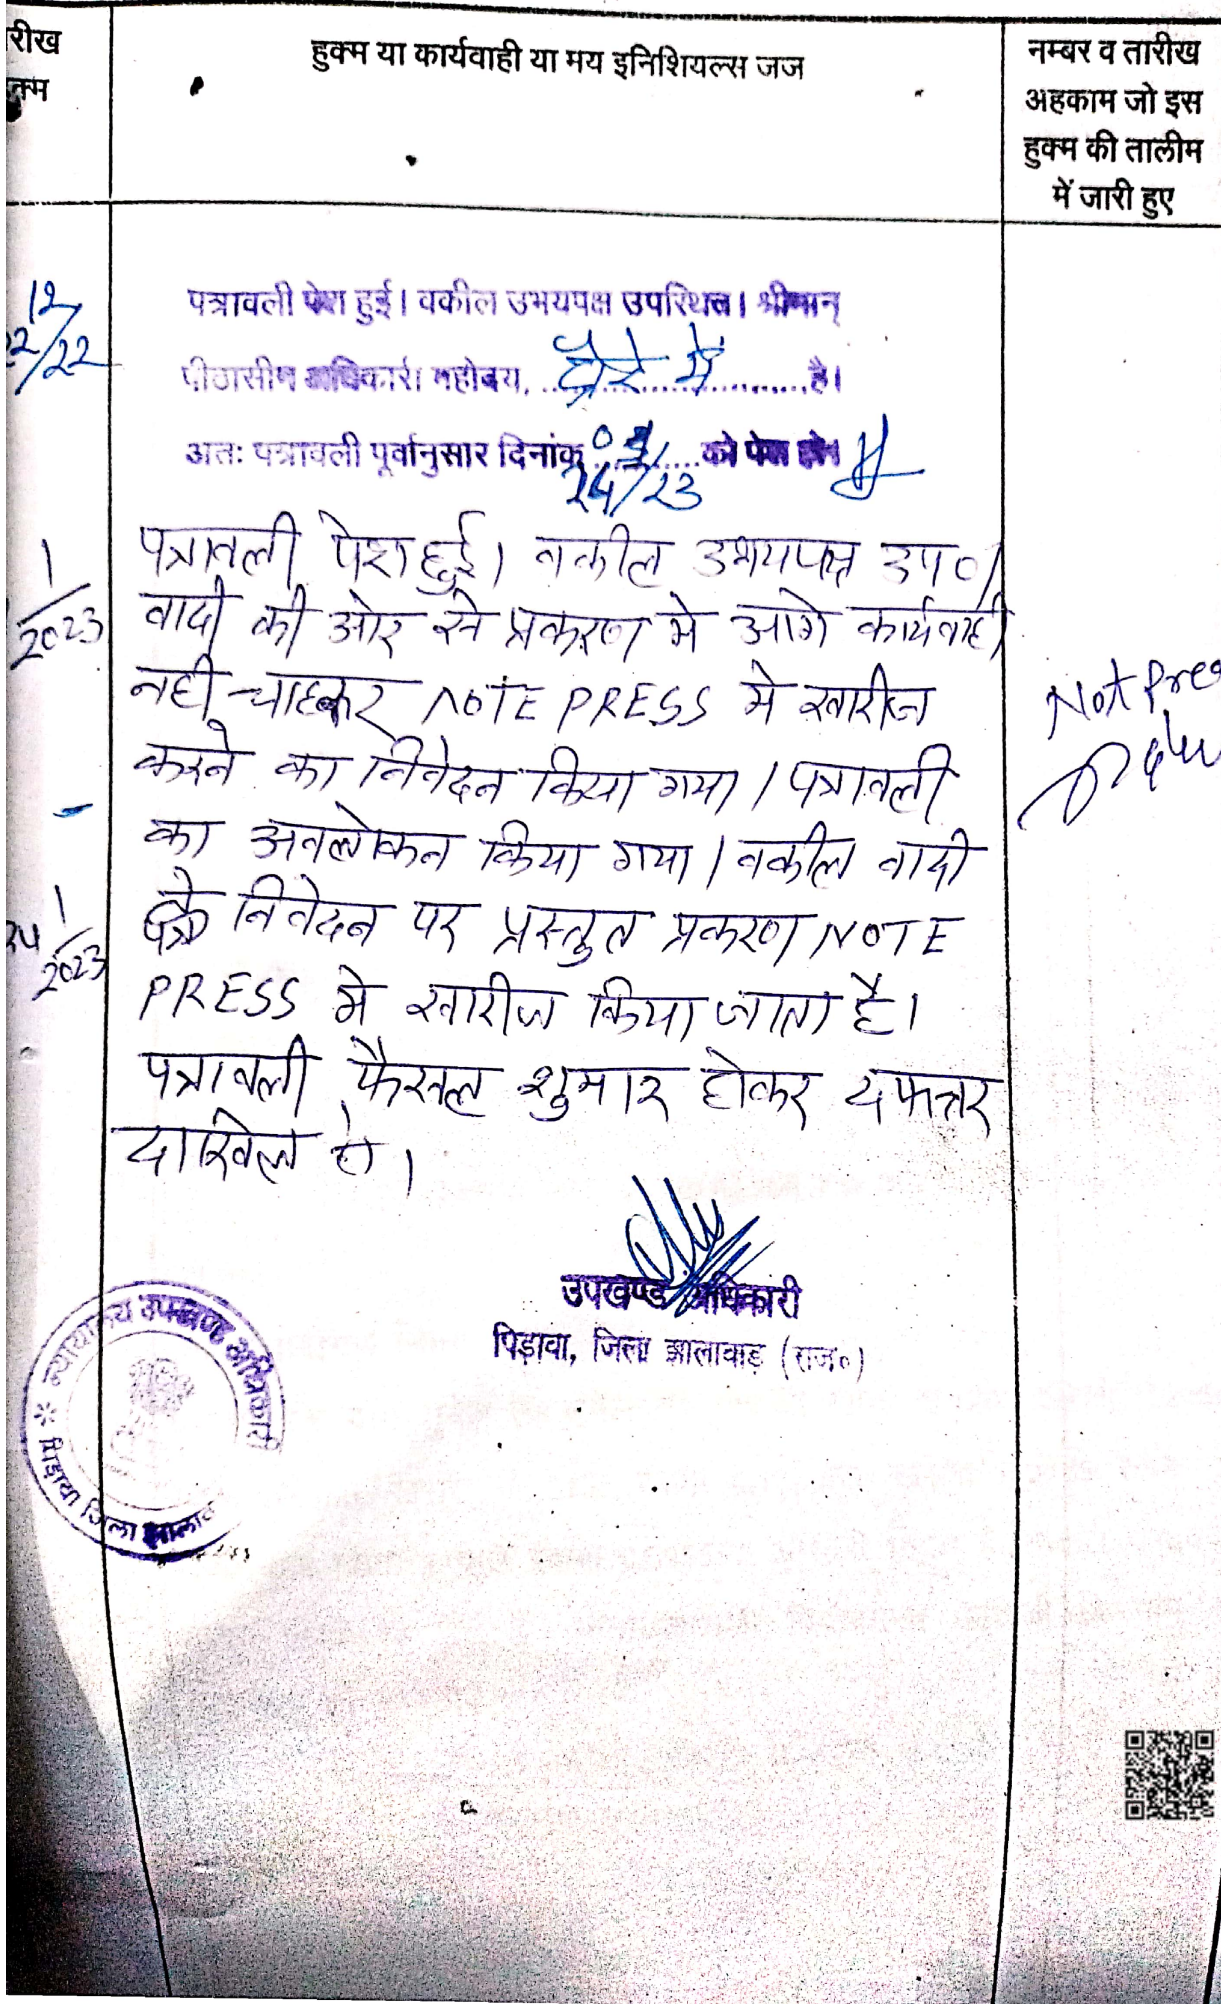 रीख
क्म
हुक्म या कार्यवाही या मय इनिशियल्स जज
नम्बर व तारीख
अहकाम जो इस
हुक्म की तालीम
में जारी हुए
12
22/22
पत्रावली पेश हुई। वकील उभयपक्ष उपस्थित। श्रीमान्
पीठासीन अधिकारी महोदय, दौरे में है।
अतः पत्रावली पूर्वानुसार दिनांक को पेश हो।
24/23
1
2023
पत्रावली पेश हुई। वकील उभयपक्ष उप०।
वादी की ओर से प्रकरण मे आगे कार्यवाही
नही चाहकर NOTE PRESS मे खारीज
करने का निवेदन किया गया। पत्रावली
का अवलोकन किया गया। वकील वादी
के निवेदन पर प्रस्तुत प्रकरण NOTE
PRESS मे खारीज किया जाता है।
पत्रावली फैसल शुमार होकर दफ्तर
दाखिल हो।
Not Pres
1
2023
उपखण्ड अधिकारी
पिड़ावा, जिला झालावाड़ (राज०)
न्यायालय उपखण्ड अधिकारी
पिड़ावा जिला झालाव